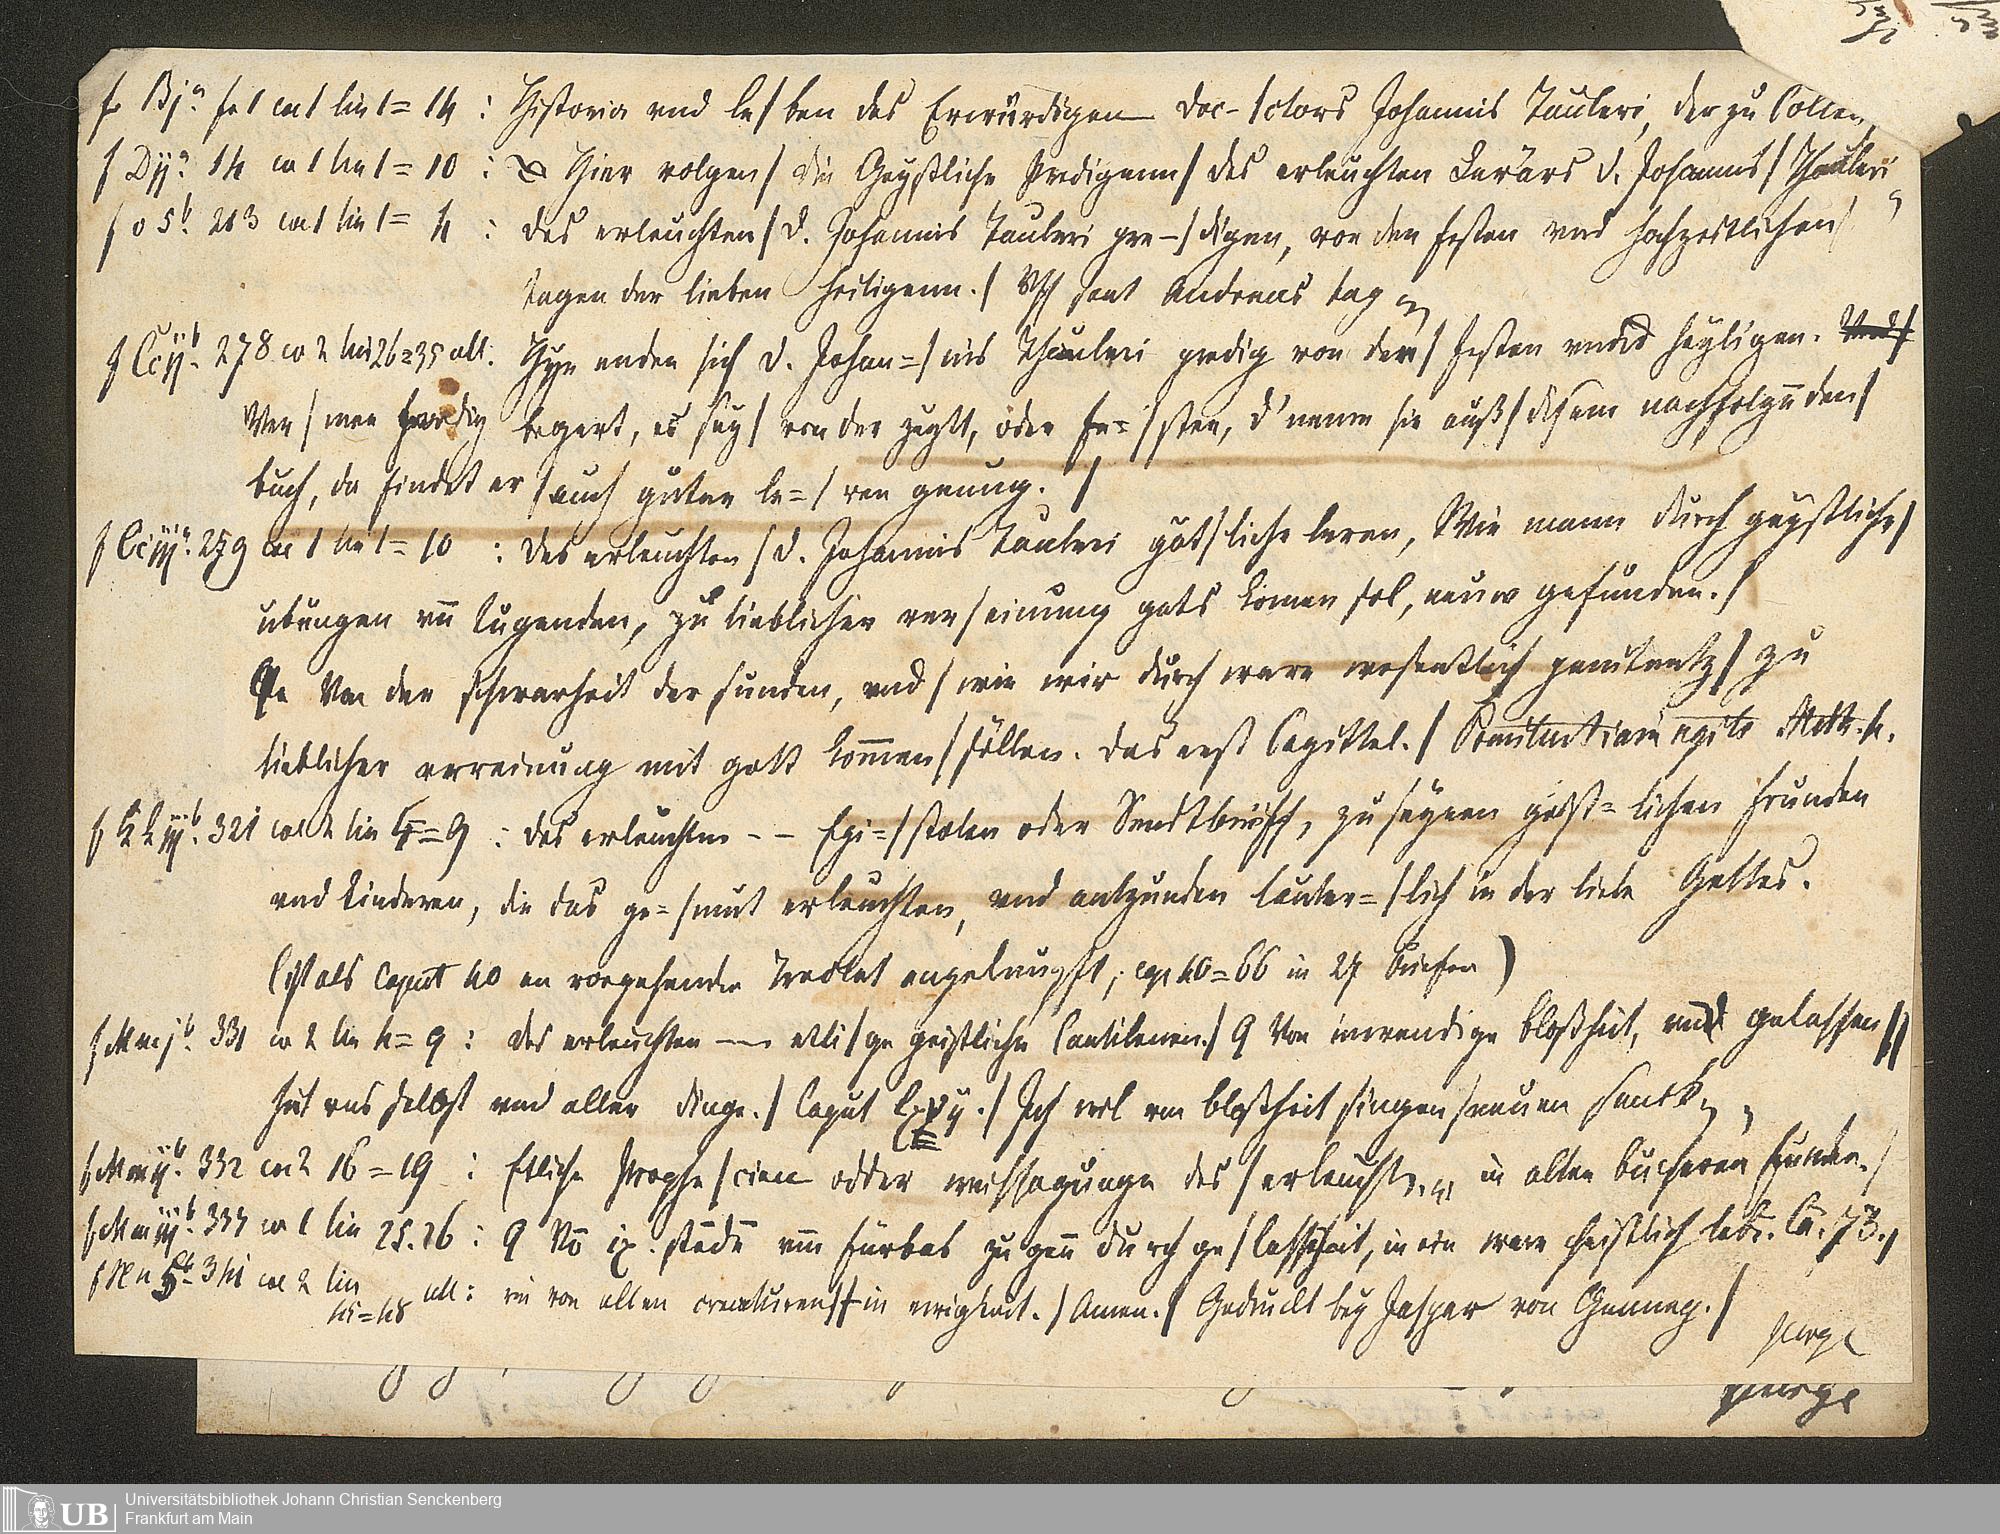 f. Bjᵃ. fo 1 col 1 lin 1=14 : Historia vnd le/ben des Erwürdigen Doc-/ctors Johannis Tauleri, der zu Collen
f Dijᵃ. 14 co 1 lin 1=10 : Hier volgen/ die Geystliche Predigenn/ des erleuchten Lerärs D. Johannis/ Thauleri
f o 5ᵇ. 213 col 1 lin 1= 4 : Des erleuchten/ D. Johannis Tauleri pre-/digen, von den festen vnd hochzeitlichen/
tagen der lieben heiligenn./ Vff sent Andreas tag
f Cc ijᵇ. 278 co 2 lin 26=35 ult. Hye enden sich D. Johan=/nis Thauleri predig von den/ festen vnd heyligen.
Wer/ mee predig begert, es sey/ von der zeytt, oder fe=/sten, d' neme sie auß/ disem nachfolgenden/
buch, da findet er/ auch guter le=/ren genug. /
f Cc iijᵃ. 279 col 1 lin 1=10 : Des erleuchten/ D. Johannis Tauleri göt/liche leren, Wie mann durch geystliche/
ubungen vn tugenden, zu lieblicher ver/einung gots komen sol, neuw gefunden./
Von der schwarheit der sunden, vnd/ wie wir durch ware wesentlich penitentz/ zu
lieblicher vereinung mit gott kommen/ söllen. Das erst Capittel./ Penitentiam agite Matth. 4.
f Ll iijᵇ. 321 col 2 lin 4=9 : Des erleuchten -- Epi=/stolen oder Sendtbrieff, zu seynen geist=lichen frunden
vnd kinderen, die das ge=/mut erleuchten, vnd entzunden lauter=/lich in der liebe Gottes.
(Ist als Caput 40 an vorgehenden Tractat angeknüpft; cap 40=66 in 27 Briefen)
f Mm jᵇ. 331 co 2 lin 4=9 : Des erleuchten --- etli/ge geistliche Cantilenen./ Von inwendige bloßheit, vnd gelassen//
heit vns selbst vnd aller dinge./ Caput lxvij./ Ich wil von bloßheit singen/ neuen sanck
f Mm ijᵇ. 332 col 2 16=19 : Etliche Prophe/cien odder weissagunge des/ erleucht. in alten bucheren funden./
f Mm iijᵇ. 333 co 1 lin 25.26 : Vō ix. stede vnn fürbas zu gen durch ge/lassheit, in ein ware geistlich lebē. Ca. 73./
f Nn 5ᵇ 341 col 2 lin
45=48 ult: von allen creaturen// in ewigkeit./ Amen./ Gedruckt bey Jaspar von Gennep./